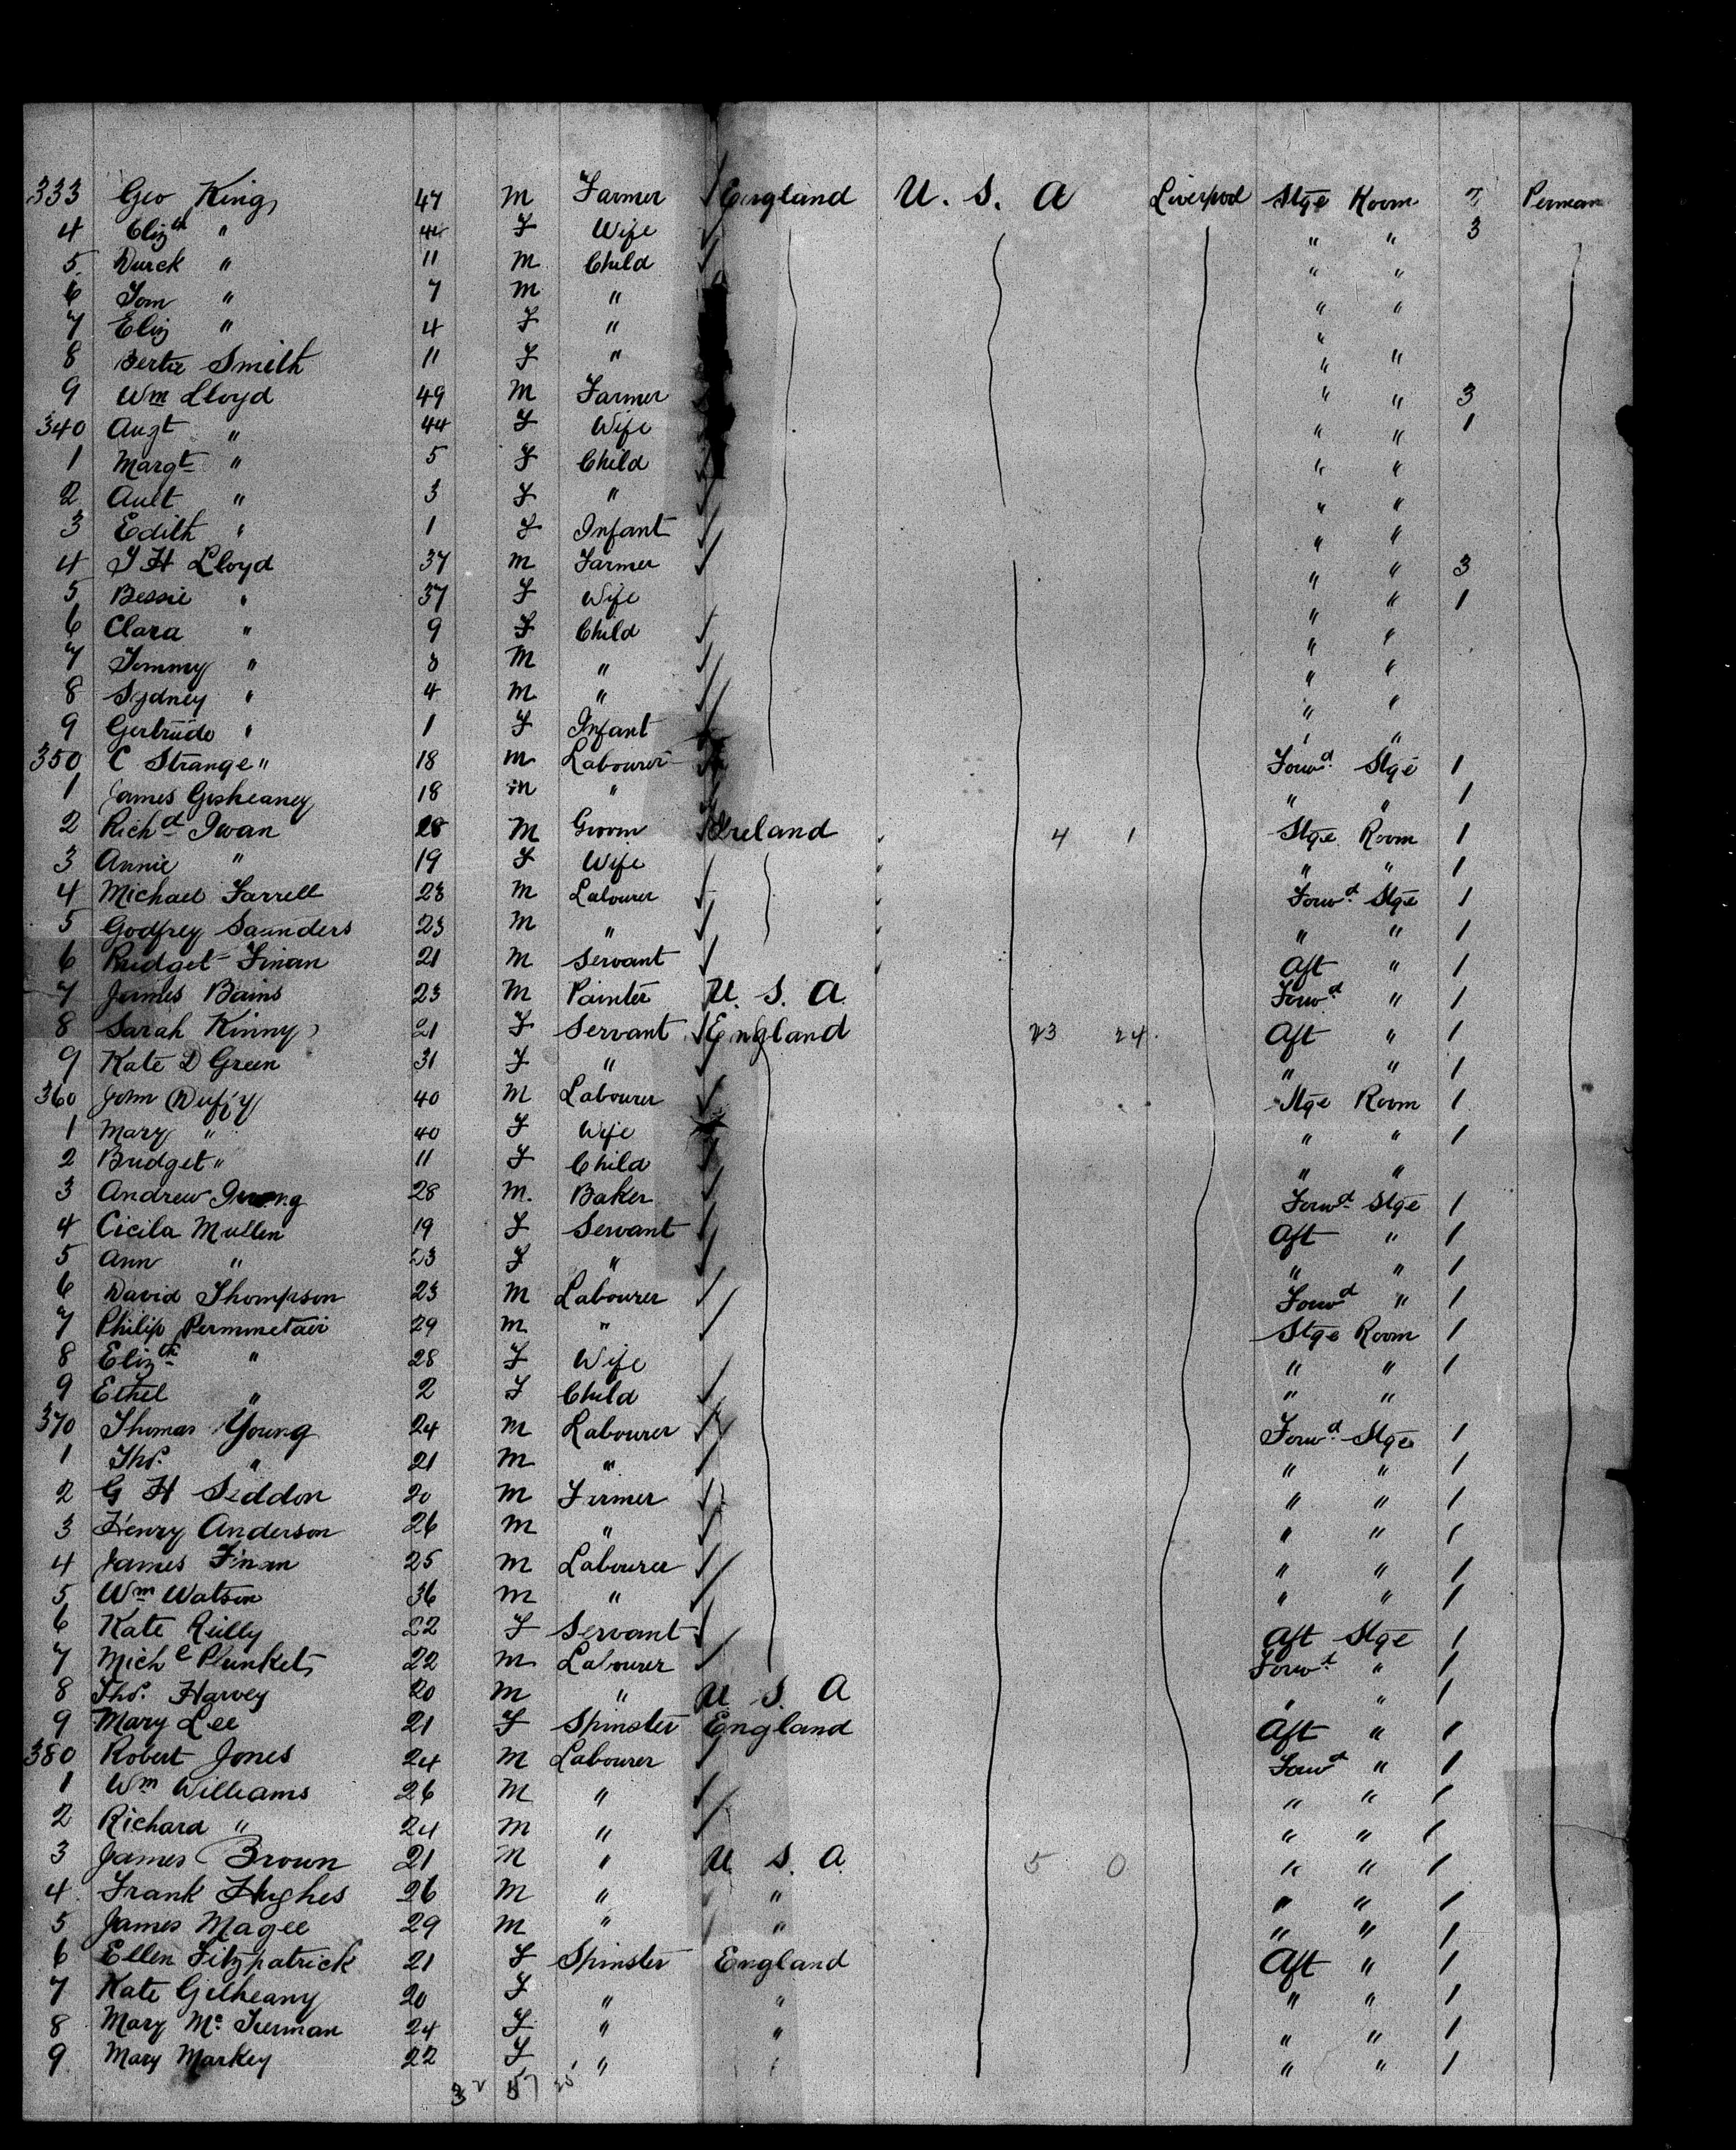 333 Geo King 47 M Farmer England U. S. A Liverpool Stge Room 7 Perman
4 Elizth " 44 F Wife " " 3
5 Durck " 11 M Child " "
6 Tom " 7 M " " "
7 Eliz " 4 F " "
8 Bertie Smith 11 F " " "
9 Wm Lloyd 49 M Farmer " " 3
340 Augt " 44 F Wife " " 1
1 Margt " 5 F Child " "
2 Ault " 3 F " " "
3 Edith " 1 F Infant " "
4 J H Lloyd 37 M Farmer " " 3
5 Bessie " 37 F Wife " " 1
6 Clara " 9 F Child " "
7 Tommy " 8 M " " "
8 Sydney " 4 M " " "
9 Gertrude " 1 F Infant " "
350 C Strange " 18 M Labourer Forwd Stge 1
1 James 18 M " " " 1
2 Richd Iwan 28 M Groom Ireland 4 1 Stge Room 1
3 Annie " 19 F Wife " " 1
4 Michael Farrell 23 M Labourer Forwd Stge 1
5 Godfrey Saunders 23 M " " " 1
6 Bridget Finan 21 M Servant Aft " 1
7 James Bains 23 M Painter U. S. A Forwd " 1
8 Sarah Kinny 21 F Servant England 23 24 Aft " 1
9 Kate D Green 31 F " " " 1
360 John Duffy 40 M Labourer Stge Room 1
1 Mary " 40 F Wife " " 1
2 Bridget " 11 F Child " "
3 Andrew 28 M. Baker Forwd Stge 1
4 Cicila Mullen 19 F Servant Aft " 1
5 Ann " 23 F " " " 1
6 David Thompson 23 M Labourer Forwd " 1
7 Philip Permmetair 29 M " Stge Room 1
8 Elizth " 28 F Wife " " 1
9 Ethel " 2 F Child " "
370 Thomas Young 24 M Labourer Forwd Stge 1
1 Thos. " 21 M " " " 1
2 G H Seddon 20 M Farmer " " 1
3 Henry Anderson 26 M " " " 1
4 James Finan 25 M Labourer " " 1
5 Wm Watson 36 M " " " 1
6 Kate Reilly 22 F Servant Aft Stge 1
7 Michl Plunket 22 M Labourer Forwd " 1
8 Thos. Harvey 20 M " U S. A " " 1
9 Mary Lee 21 F Spinster England Aft " 1
380 Robert Jones 24 M Labourer Forwd " 1
1 Wm Williams 26 M " " " 1
2 Richard " 24 M " " " 1
3 James Brown 21 M " U S. A. 5 0 " " 1
4 Frank Hughes 26 M " " " " 1
5 James Magee 29 M " " " " 1
6 Ellen Fitzpatrick 21 F Spinster England Aft " 1
7 Kate Gilheany 20 F " " " " 1
8 Mary Mc Tiernan 24 F " " " " 1
9 Mary Markey 22 F " " " " 1
57